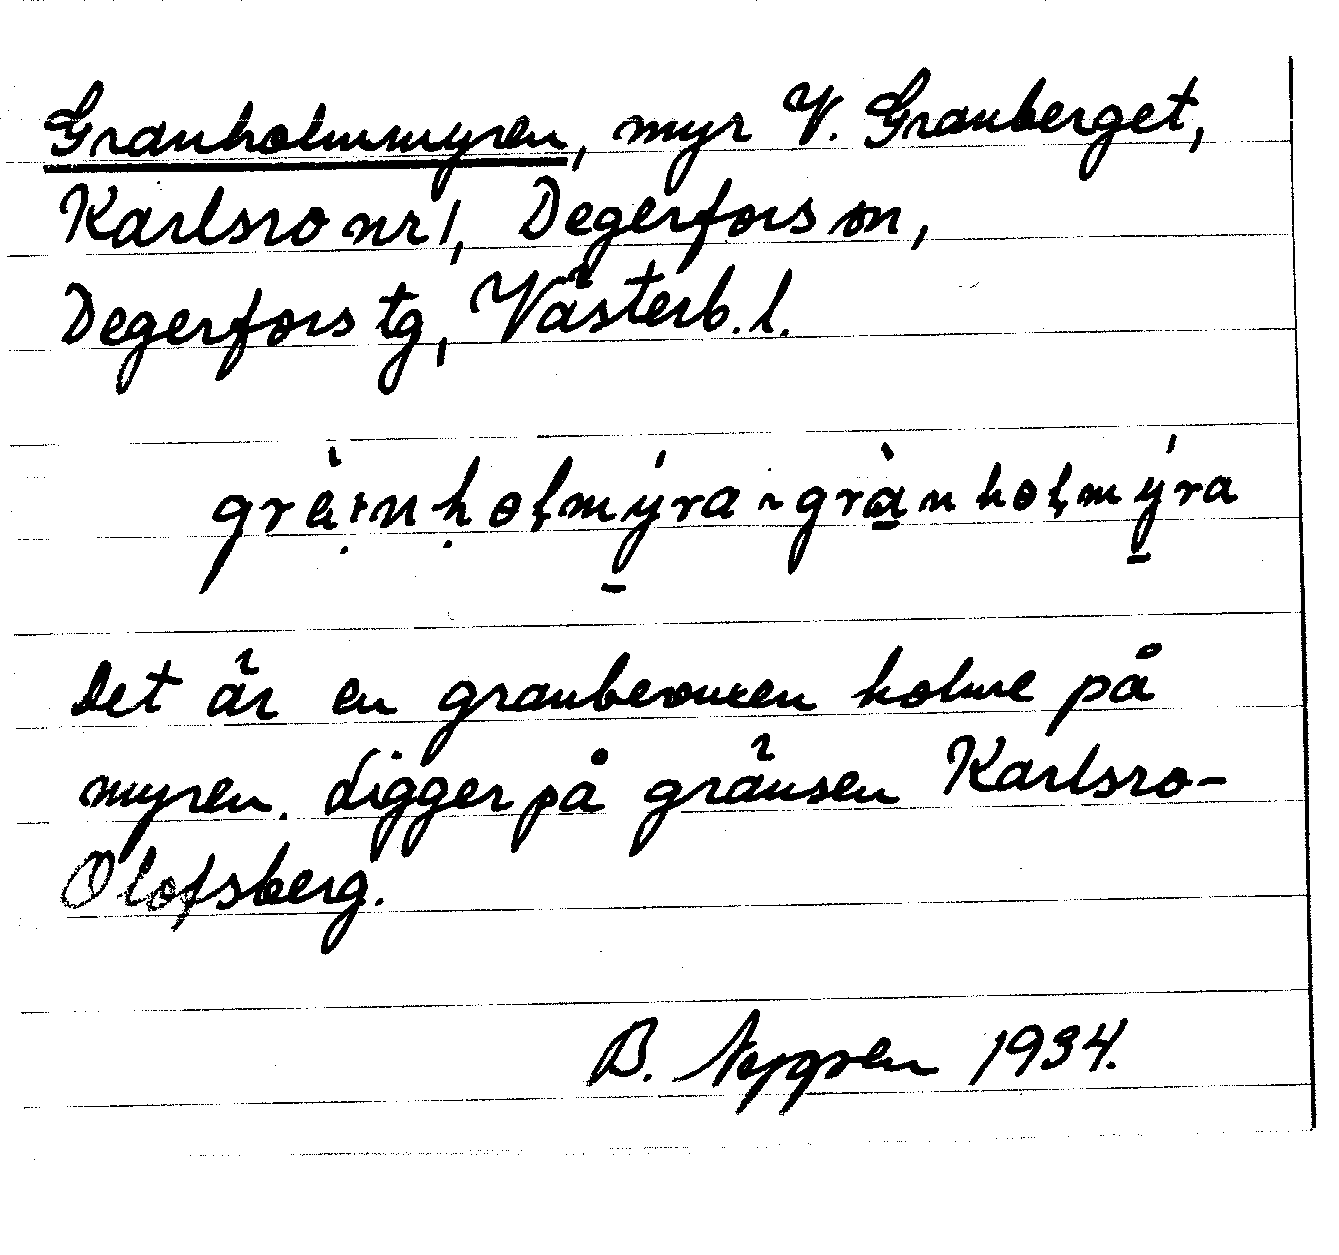 Granholmmyren, myr V. Granberget,
Karlsro nr 1, Degerfors sn,
Degerfors tg, Västerb. l.
grànholmýra ~ grànholmýra
Det är en granbevuxen holme på
myren. Ligger på gränsen Karlsro-
Olofsberg.
B. 1934.